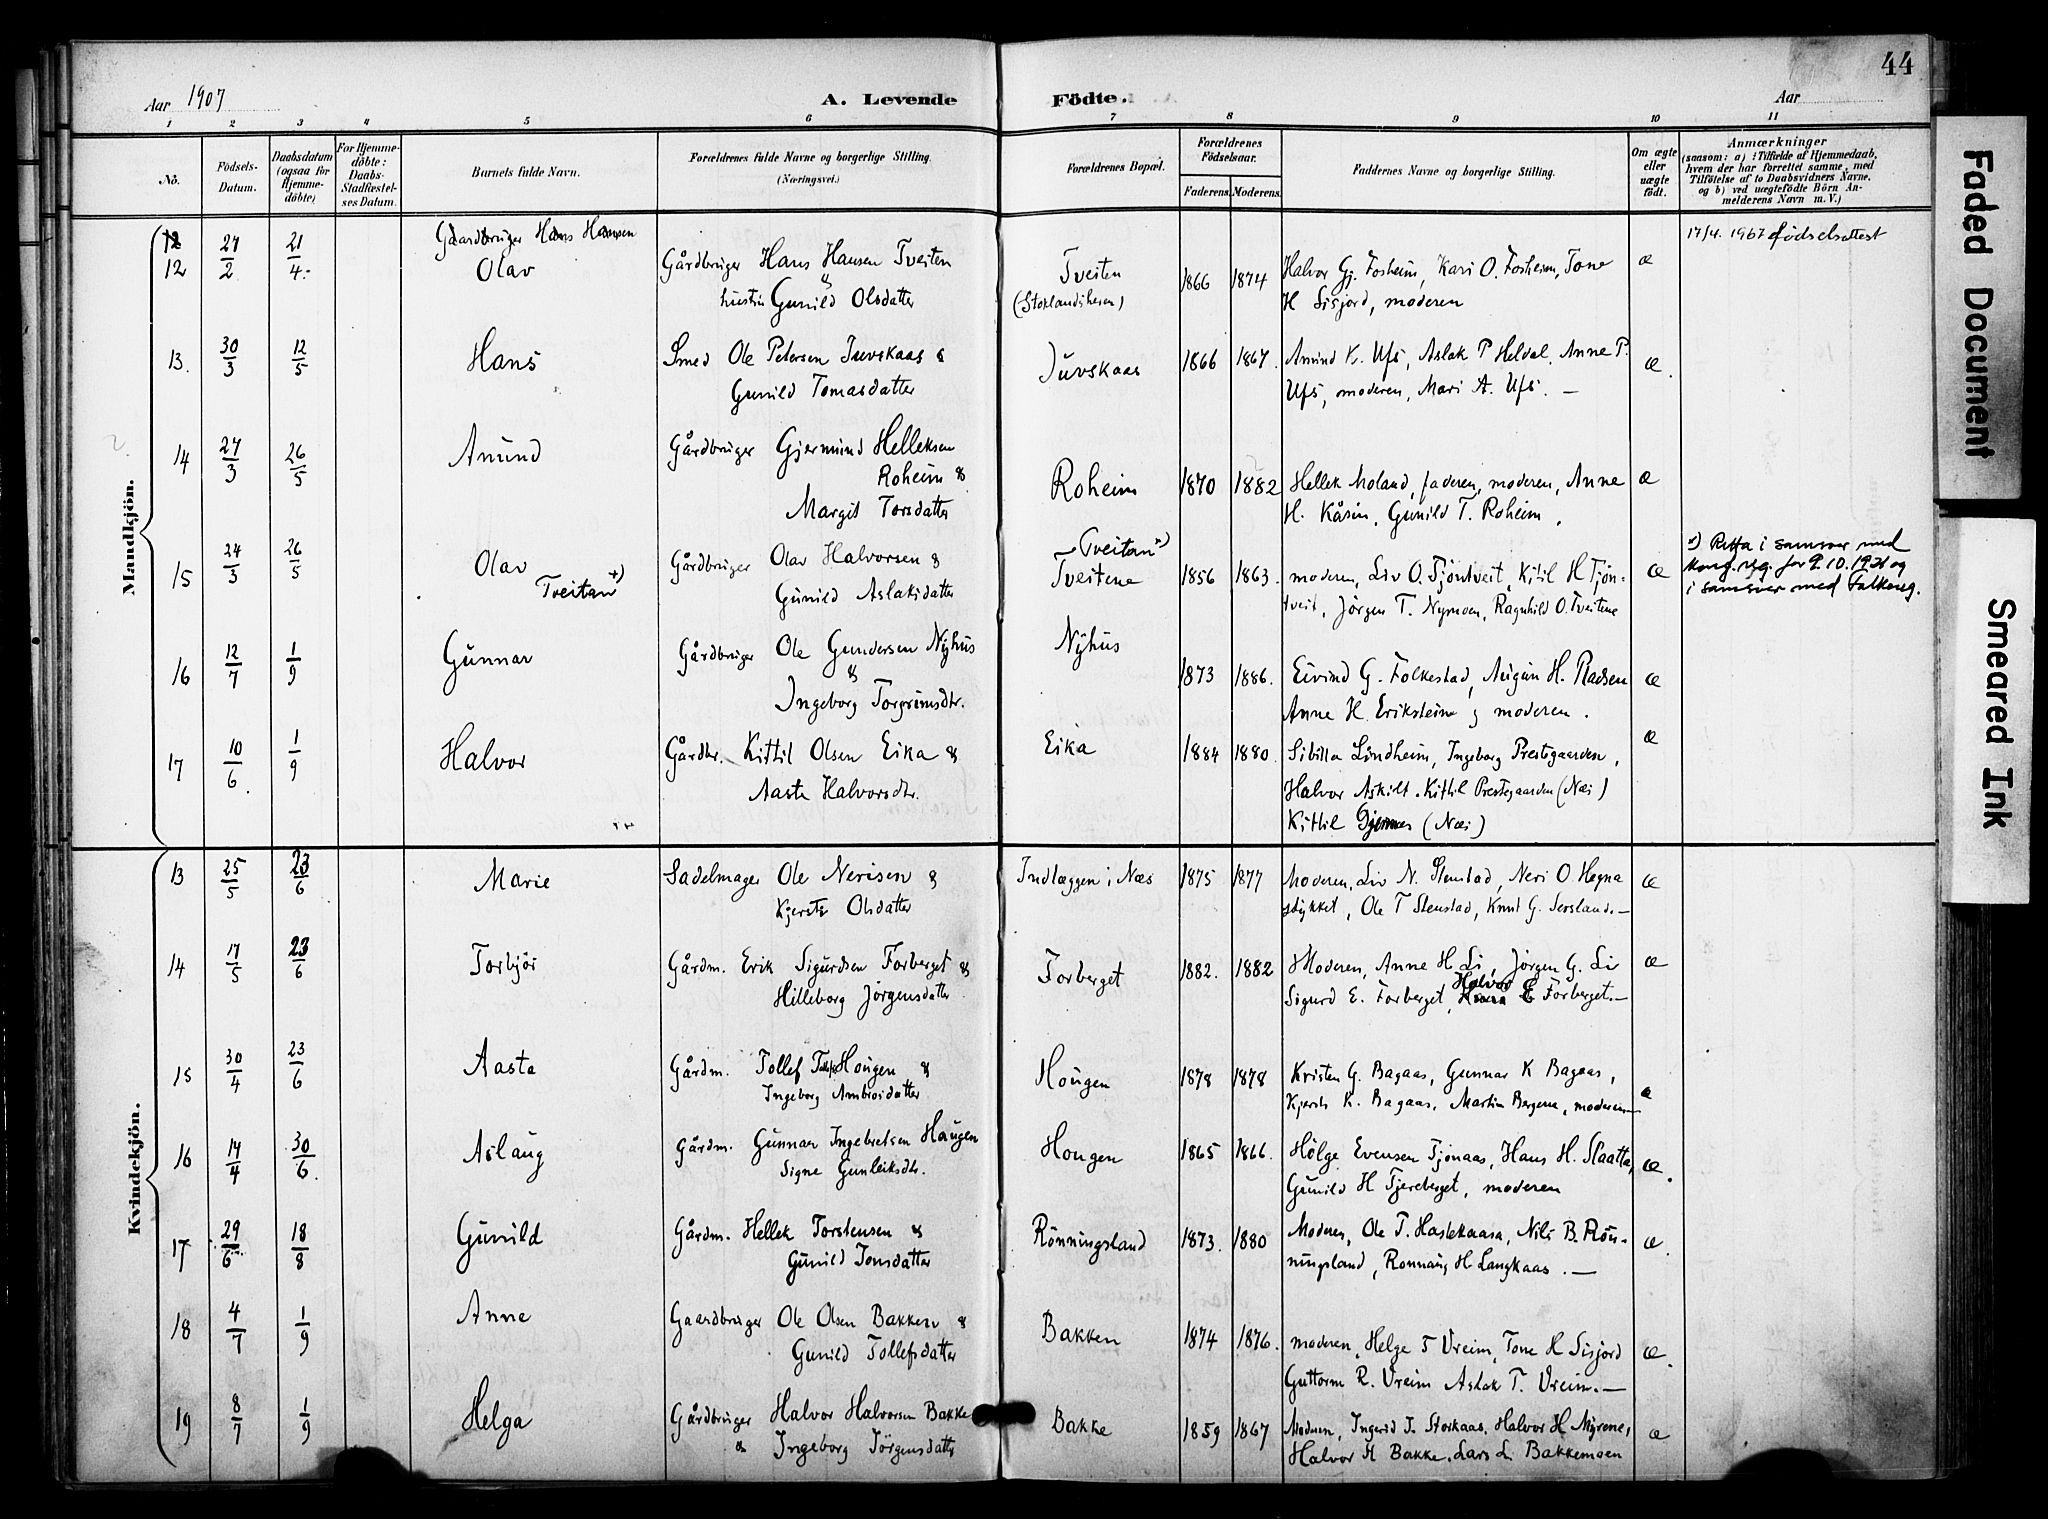 44
Aar 1907 A. Levende Födte. Aar
1 2 3 4 5 6 7 8 9 10 11
No.
Födsels-Datum.
Daabsdatum (ogsaa for Hjemme-döbte)
For Hjemme-döbte: Daabs-Stadfæstel-ses Datum.
Barnets fulde Navn.
Forældrenes fulde Navne og borgerlige Stilling.
(Næringsvei.)
Forældrenes Bopæl.
Forældrenes Födselsaar.
Faderens. Moderens.
Faddernes Navne og borgerlige Stilling.
Om ægte eller uægte födt.
Anmærkninger
(saasom: a) i Tilfælde af Hjemmedaab,
hvem der har forrettet samme, med
Tilföielse af to Daabsvidners Navne,
og b) ved uægtefödte Börn An-
melderens Navn m. V.)
Mandkjön.
12 27/2 21/4 Gaardbruger Hans Hansen 17/4. 1967 födselsattest
12 Olav Gårdbruger Hans Hansen Tveiten & Tveiten 1866 1874 Halvor Gj. Fosheim, Kari O. Fosheim, Tone æ
hustru Gunild Olsdatter (Stoklandsheien) H Sisjord, moderen
13. 30/3 12/5 Hans Smed Ole Petersen Juvskaas & Juvskaas 1866 1867. Amund K. Ufs, Aslak P Heldal, Anne P. æ.
Gunild Tomasdatter Ufs, moderen, Mari A. Ufs. —
14 27/3 26/5 Amund Gårdbruger Gjermund Helleksen
Roheim & Roheim 1870 1882 Hellek Moland, faderen, moderen, Anne æ
Margit Torsdatter H. Kåsin, Gunild T. Roheim.
15 24/3 26/5 Olav Gårdbruger Olav Halvorsen & Tveitan +) +) Retta i samsvar med
Tveitan +) Tveitene 1856 1863. moderen, Liv O. Tjöntveit, Kitil H Tjön- æ kong. res. for 9.10.1921 og
Gunild Aslaksdatter tveit, Jörgen T. Nymoen, Ragnhild O. Tveitene i samsvar med folkereg.
16 12/7 1/9 Gunnar Gårdbruger Ole Gundersen Nyhus & Nyhus 1873 1886. Eivind G. Folkestad, Augun H. Radsen æ
Ingeborg Torgrimsdtr. Anne H. Eriksteine, moderen.
17 10/6. 1/9 Halvor Gårdbr. Kittil Olsen Eika & Eika 1884 1880. Sibilla Lindheim, Ingeborg Prestegaarden, æ
Aaste Halvorsdtr. Halvor Askilt. Kittil Prestegaarden (Næs)
Kittil (Næs)
Kvindekjön.
13 25/5 23/6 Marie Sadelmager Ole Nerisen & Indlæggen i Næs 1875 1877 Moderen, Liv N. Stenstad, Neri O. Hegna æ
Kjersti Olsdatter stykket, Ole T Stenstad, Knut G. Sersland. —
14 17/5 23/6 Torbjör Gårdm. Erik Sigurdsen Forberget & Forberget 1882. 1882 Moderen, Anne H. Li, Jörgen G. Li æ
Hilleborg Jörgensdatter Sigurd E. Forberget, Halvor E Forberget. —
15 30/4 23/6 Aasta Gårdm. Tollef Tollefs. Hougen & Hougen 1878 1878 Kristen G. Bagaas, Gunnar K Bagaas, æ
Ingeborg Ambrosdatter Kjersti K. Bagaas, Martin Bergene, moderen —
16 14/4 30/6. Aslaug Gårdm. Gunnar Ingebretsen Haugen Hougen 1865 1866. Hölge Evensen Tjönaas, Hans H. Slaatta, æ.
Signe Gunleiksdtr. Gunild H Tjereberget, moderen
17 29/6 18/8 Gunild Gårdm. Hellek Torstensen & Rönningsland 1873. 1880 Moderen, Ole T. Haslekaasa, Nils B. Rön- æ.
Gunild Jonsdatter ningsland, Ronnaug H Langkaas. —
18 4/7 1/9 Anne Gaardbruger Ole Olsen Bakken & Bakken 1874 1876. moderen, Helge T Vreim, Tone H Sisjord æ.
Gunild Tollefsdatter Guttorm R. Vreim Aslak T. Vreim. —
19 8/7 1/9 Helga Gårdbruger Halvor Halvorsen Bakke Bakke 1859 1867 Moderen, Ingerid J. Storkaas, Halvor H Myrene, æ
& Ingeborg Jörgensdatter Halvor H Bakke. Lars L. Bakkemoen
Faded Document
Smeared Ink